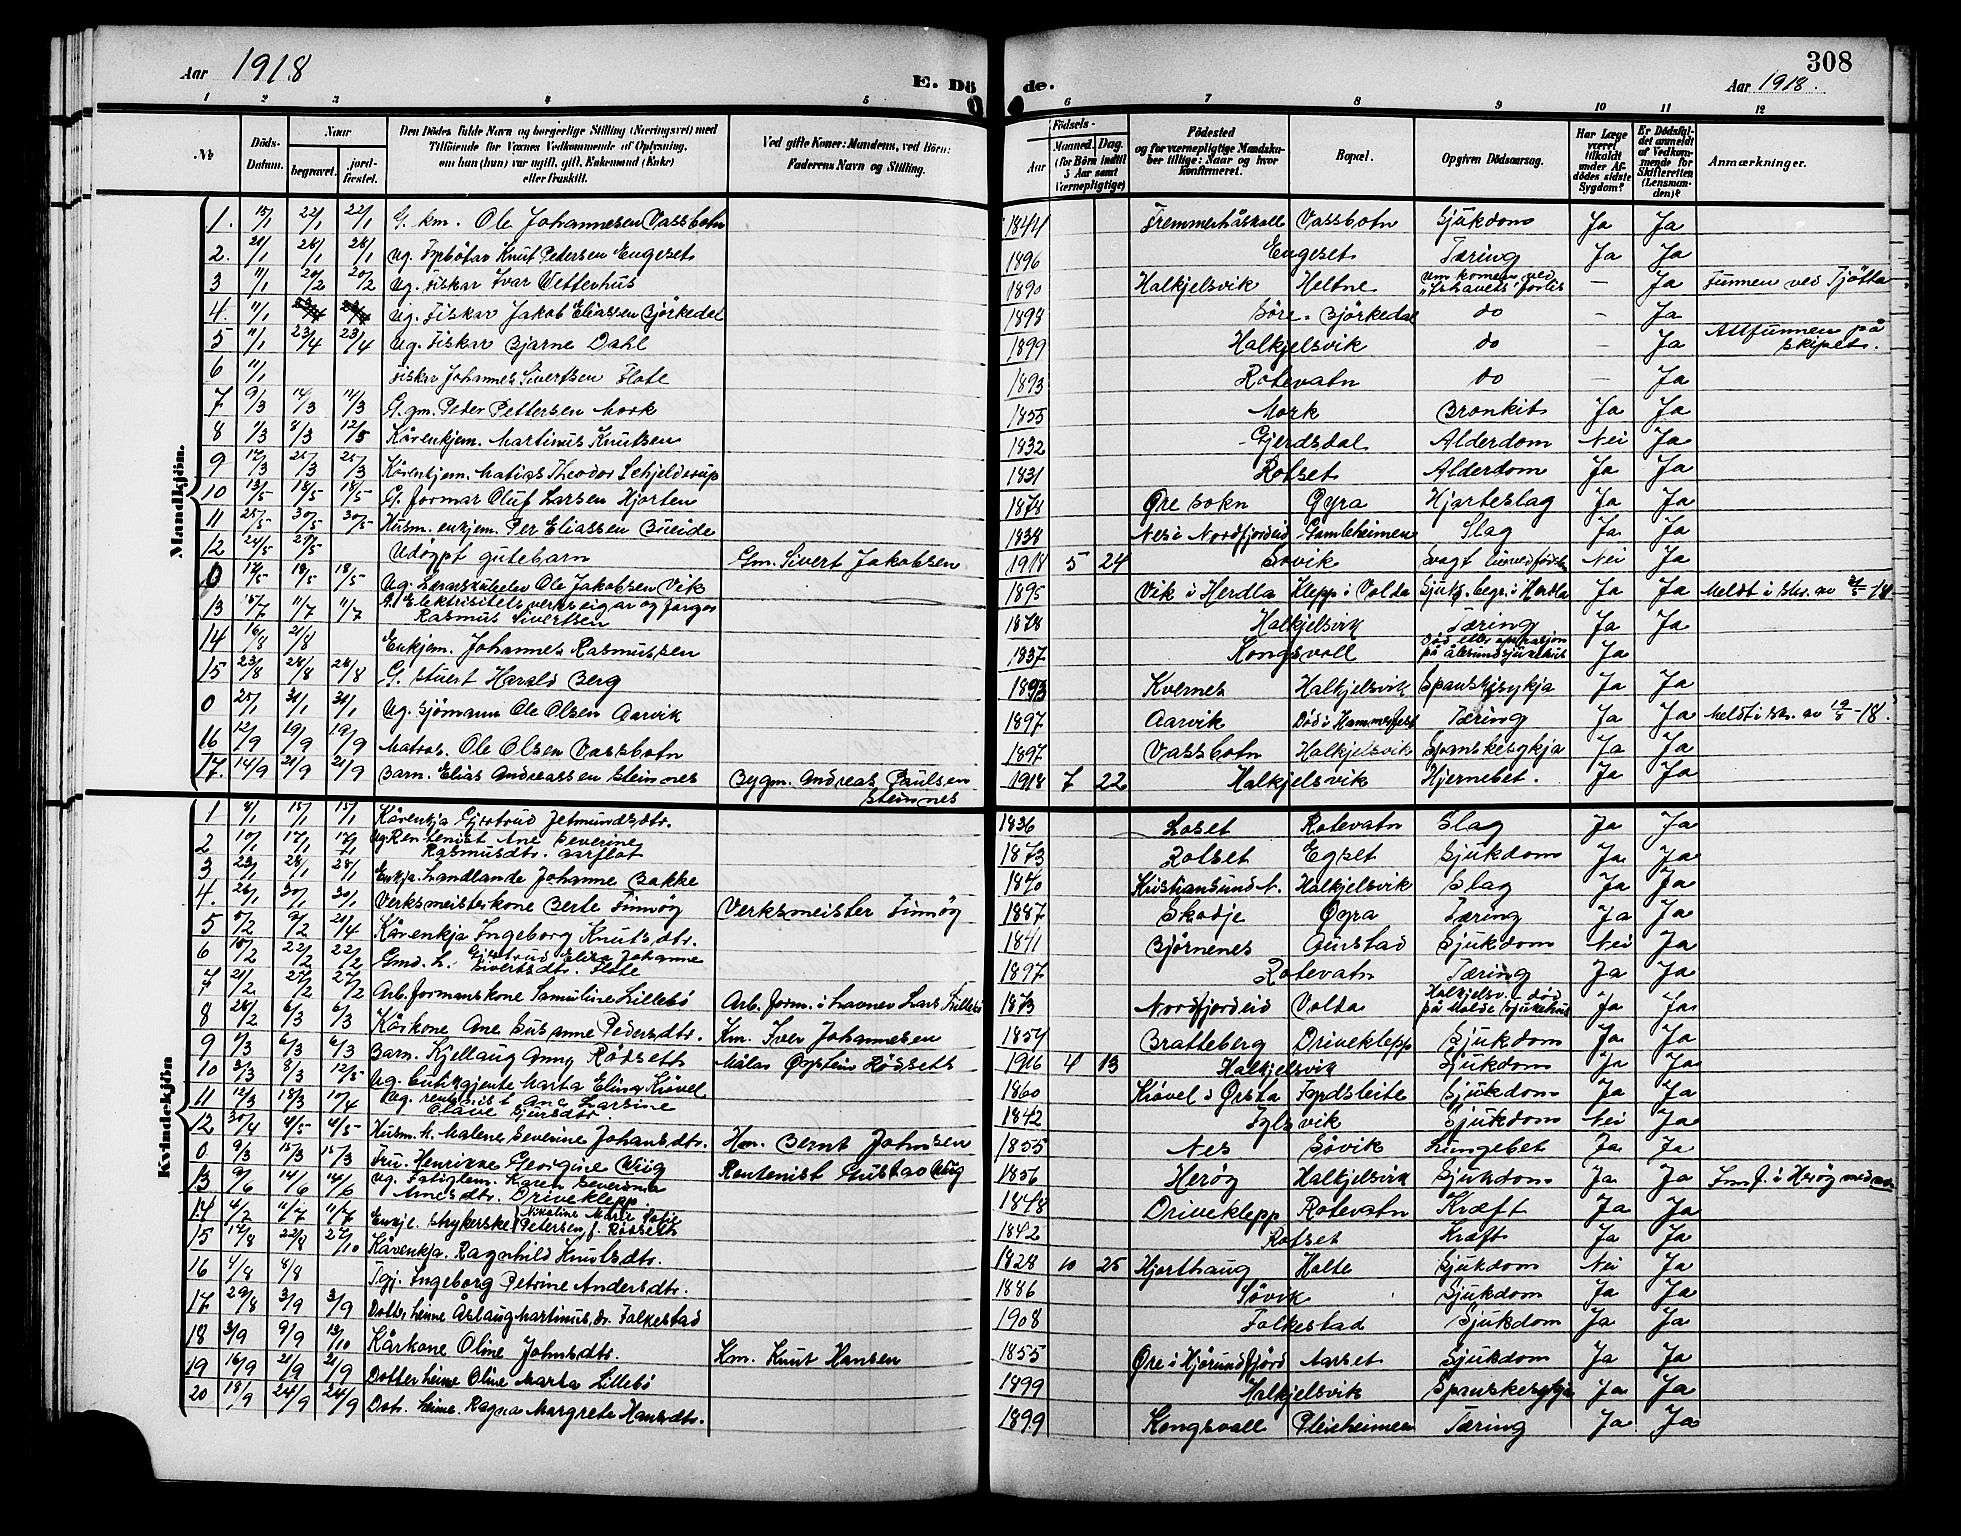 Aar 1918
E. Dö
de.
308
Aar 1918.
1 2 3 4 5 6 7 8 9 10 11 12
No
Döds-Datum.
Naar
begravet.
jord-fæstet.
Den Dödes fulde Navn og borgerlige Stilling (Næringsvei) med
Tilföiende for Voxnes Vedkommende af Oplysning,
om han (hun) var ugift, gift, Enkemand (Enke)
eller fraskilt.
Ved gifte Koner: Mandens, ved Börn:
Faderens Navn og Stilling.
Födsels-
Aar
Maaned. Dag.
(for Börn indtil
5 Aar samt
Værnepligtige)
Födested
og for værnepligtige Mandska-
ber tillige: Naar og hvor
konfirmeret.
Bopæl.
Opgiven Dödsaarsag.
Har Læge
været
tilkaldt
under Af-
dödes sidste
Sygdom?
Er Dödsfal-
det anmeldt
af Vedkom-
mende for
Skifteretten
(Lensman-
den)?
Anmærkninger.
Mandkjön.
1. 15/1 22/1 22/1 G. km. Ole Johannesen Vassbotn 1844 Fremmerhåskoll Vassbotn Sjukdom Ja Ja
2. 21/1 28/1 28/1 Ug. Fyrbøtar Knut Petersen Engeset 1896 Engeset Tæring Ja Ja
3 11/1 20/2 20/2 Ug. Fiskar Ivar Vetterhus 1890 Halkjelsvik Heltne umkomen ved "Ishavets" forlis – Ja Funnen ved Tjøtta
4. 11/1 Ug. Fiskar Jakob Eliassen Bjørkedal 1898 Søre-Bjørkedal do – Ja
5 11/1 23/4 23/4 Ug. Fiskar Bjarne Dahl 1899 Halkjelsvik do – Ja Attfunnen på skipet.
6 11/1 Fiskar Johannes Sivertsen Flote 1893 Rotevatn do – Ja
7 9/3 14/3 14/3 G. gm. Peder Pettersen Mork 1855 Mork Bronkit Ja Ja
8 1/3 8/3 12/5 Kårenkjem. Martinus Knutsen 1832 Gjerdsdal Alderdom Nei Ja
9 17/3 25/3 25/3 Kårenkjem. Matias Theodor Schjelderup 1831 Rotset Alderdom Ja Ja
10 13/5 18/5 18/5 G. formar Oluf Larsen Hjorten 1878 Øre sokn Øyra Hjarteslag Ja Ja
11 25/5 30/5 30/5 Husm. enkjem. Per Eliassen Bueide 1838 Nes i Nordfjordeid Gamleheimen Slag Ja Ja
12 24/5 29/5 Udøypt gutebarn Gm. Sivert Jakobsen 1918 5 24 Søvik Svagt liv ved fødsla Nei Ja
0 12/5 18/5 18/5 Ug. Lærarskuleelev Ole Jakobsen Vik 1895 Vik i Herdla Klepp i Volda Sjukd. begr. i Herdla Ja Ja Meldt i skr. av 21/5-18
13 5/7 11/7 11/7 G. Elektrisitetsverkseigar og
Rasmus Sivertsen 1878 Halkjelsvik Tæring Ja Ja
14 16/8 21/8 Enkjem. Johannes Rasmussen 1837 Kongsvoll Død etter operasjon på Ålesund sjukehus Ja
15 23/8 28/8 28/8 G. Stuert Harald Berg 1893 Kvernes Halkjelsvik Spansksykja Ja Ja
0 25/1 31/1 31/1 Ug. Sjømann Ole Olsen Aarvik 1897 Aarvik Død i Hammerfest Tæring Ja Ja Meldt i skr. av 19/8-18.
16 12/9 19/9 19/9 Matros. Ole Olsen Vassbotn 1897 Vassbotn Halkjelsvik Spanskesykja Ja Ja
17. 14/9 21/9 21/9 Barn. Elias Andreassen Steinnes Bygm. Andreas Paulsen Steinnes 1918 7 22 Halkjelsvik Hjernebet. Ja Ja
Kvindekjön
1 8/1 15/1 15/1 Kårenkja Gjertrud Jetmundsdtr. 1836 Loset Rotevatn Slag Ja Ja
2 10/1 17/1 17/1 Ug. Rentenist Ane Severine
Rasmusdtr. Aarflot 1873 Rotset Egset Sjukdom Ja Ja
3 23/1 28/1 28/1 Enkja Landlande Johanne Bakke 1840 Kristiansund N. Halkjelsvik Slag Ja Ja
4. 26/1 30/1 30/1 Verksmeisterkone Berte Finnøy Verksmeister Finnøy 1887 Skodje Øyra Tæring Ja Ja
5 5/2 9/2 21/4 Kårenkja Ingeborg Knutsdtr. 1841 Bjørnenes Aurstad Sjukdom Nei Ja
6 15/2 22/2 22/2 Gmd. h. Gjertrud Elise Johanne
Sivertsdtr. Flote 1897 Rotevatn Tæring Ja Ja
7 21/2 27/2 27/2 Arb. formanskone Samuline Lillebø Arb. form. i Lavnev Lars Lillebø 1873 Nordfjordeid Volda Halkjelsv. død på Molde sjukehus Ja Ja
8 28/2 6/3 6/3 Kårkone Ane Susanne Pedersdtr. Km. Iver Johannesen 1854 Bratteberg Driveklepp Sjukdom Ja Ja
9 1/3 6/3 6/3 Barn. Kjellaug Anny Rødseth Målar Øystein Rødseth 1916 4 13 Halkjelsvik Sjukdom Ja Ja
10 3/3 8/3 12/5 Ug. Butikgjente Marta Elina Krøvel 1860 Krøvel i Ørsta Fyrdsleite Sjukdom Ja Ja
11 12/3 18/3 10/4 Ug. rentenist Ane Larsine
Olave Sjursdtr 1842 Yglsvik Sjukdom Nei Ja
12 30/4 4/5 4/5 Husm. k. Malene Severine Johansdtr. Hm. Bernt Johnsen 1855 Nes Søvik Lungebet Ja Ja
0 9/3 15/3 15/3 Fru. Henrikke Georgine Wiig Rentenist Gustav Wiig 1856 Herøy Halkjelsvik Sjukdom Ja Ja
13 9/6 14/6 14/6 Ug. Fatiglem. Karen Severina
Anesdtr. Driveklepp 1848 Driveklepp Rotevatn Kræft Ja Ja
14 4/7 11/7 11/7 Enkje. Strykerske Nikoline Marie Sofie
Petersen, f. Rotseth 1842 Rotset Kræft Ja Ja
15 17/8 22/8 27/10 Kårenkja. Ragnhild Knutsdtr. 1828 10 25 Hjorthaug Holte Sjukdom Nei Ja
16 4/8 8/8 Tgj. Ingeborg Petrine Andersdtr. 1886 Søvik Sjukdom Ja Ja
17 29/8 3/9 3/9 Dotter heime Åslaug Martinusdr. Folkestad 1908 Folkestad Sjukdom Ja Ja
18 3/9 9/9 13/10 Kårkone Oline Johnsdtr. Km. Knut Hansen 1855 Øre i Hjørundfjord Aarset Sjukdom Ja Ja
19 16/9 21/9 21/9 Dotter heime Oline Marta Lillebø 1899 Halkjelsvik Spanskesykja Ja Ja
20 18/9 24/9 24/9 Dot. heime. Ragna Margrete Hansdtr. 1899 Kongsvoll Pleieheimen Tæring Ja Ja